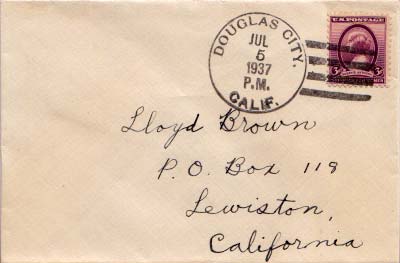 DOUGLAS CITY.
JUL
5
1937
P.M.
CALIF.
U.S. POSTAGE
3¢ 3¢
Lloyd Brown
P.O. Box 118
Lewiston,
California